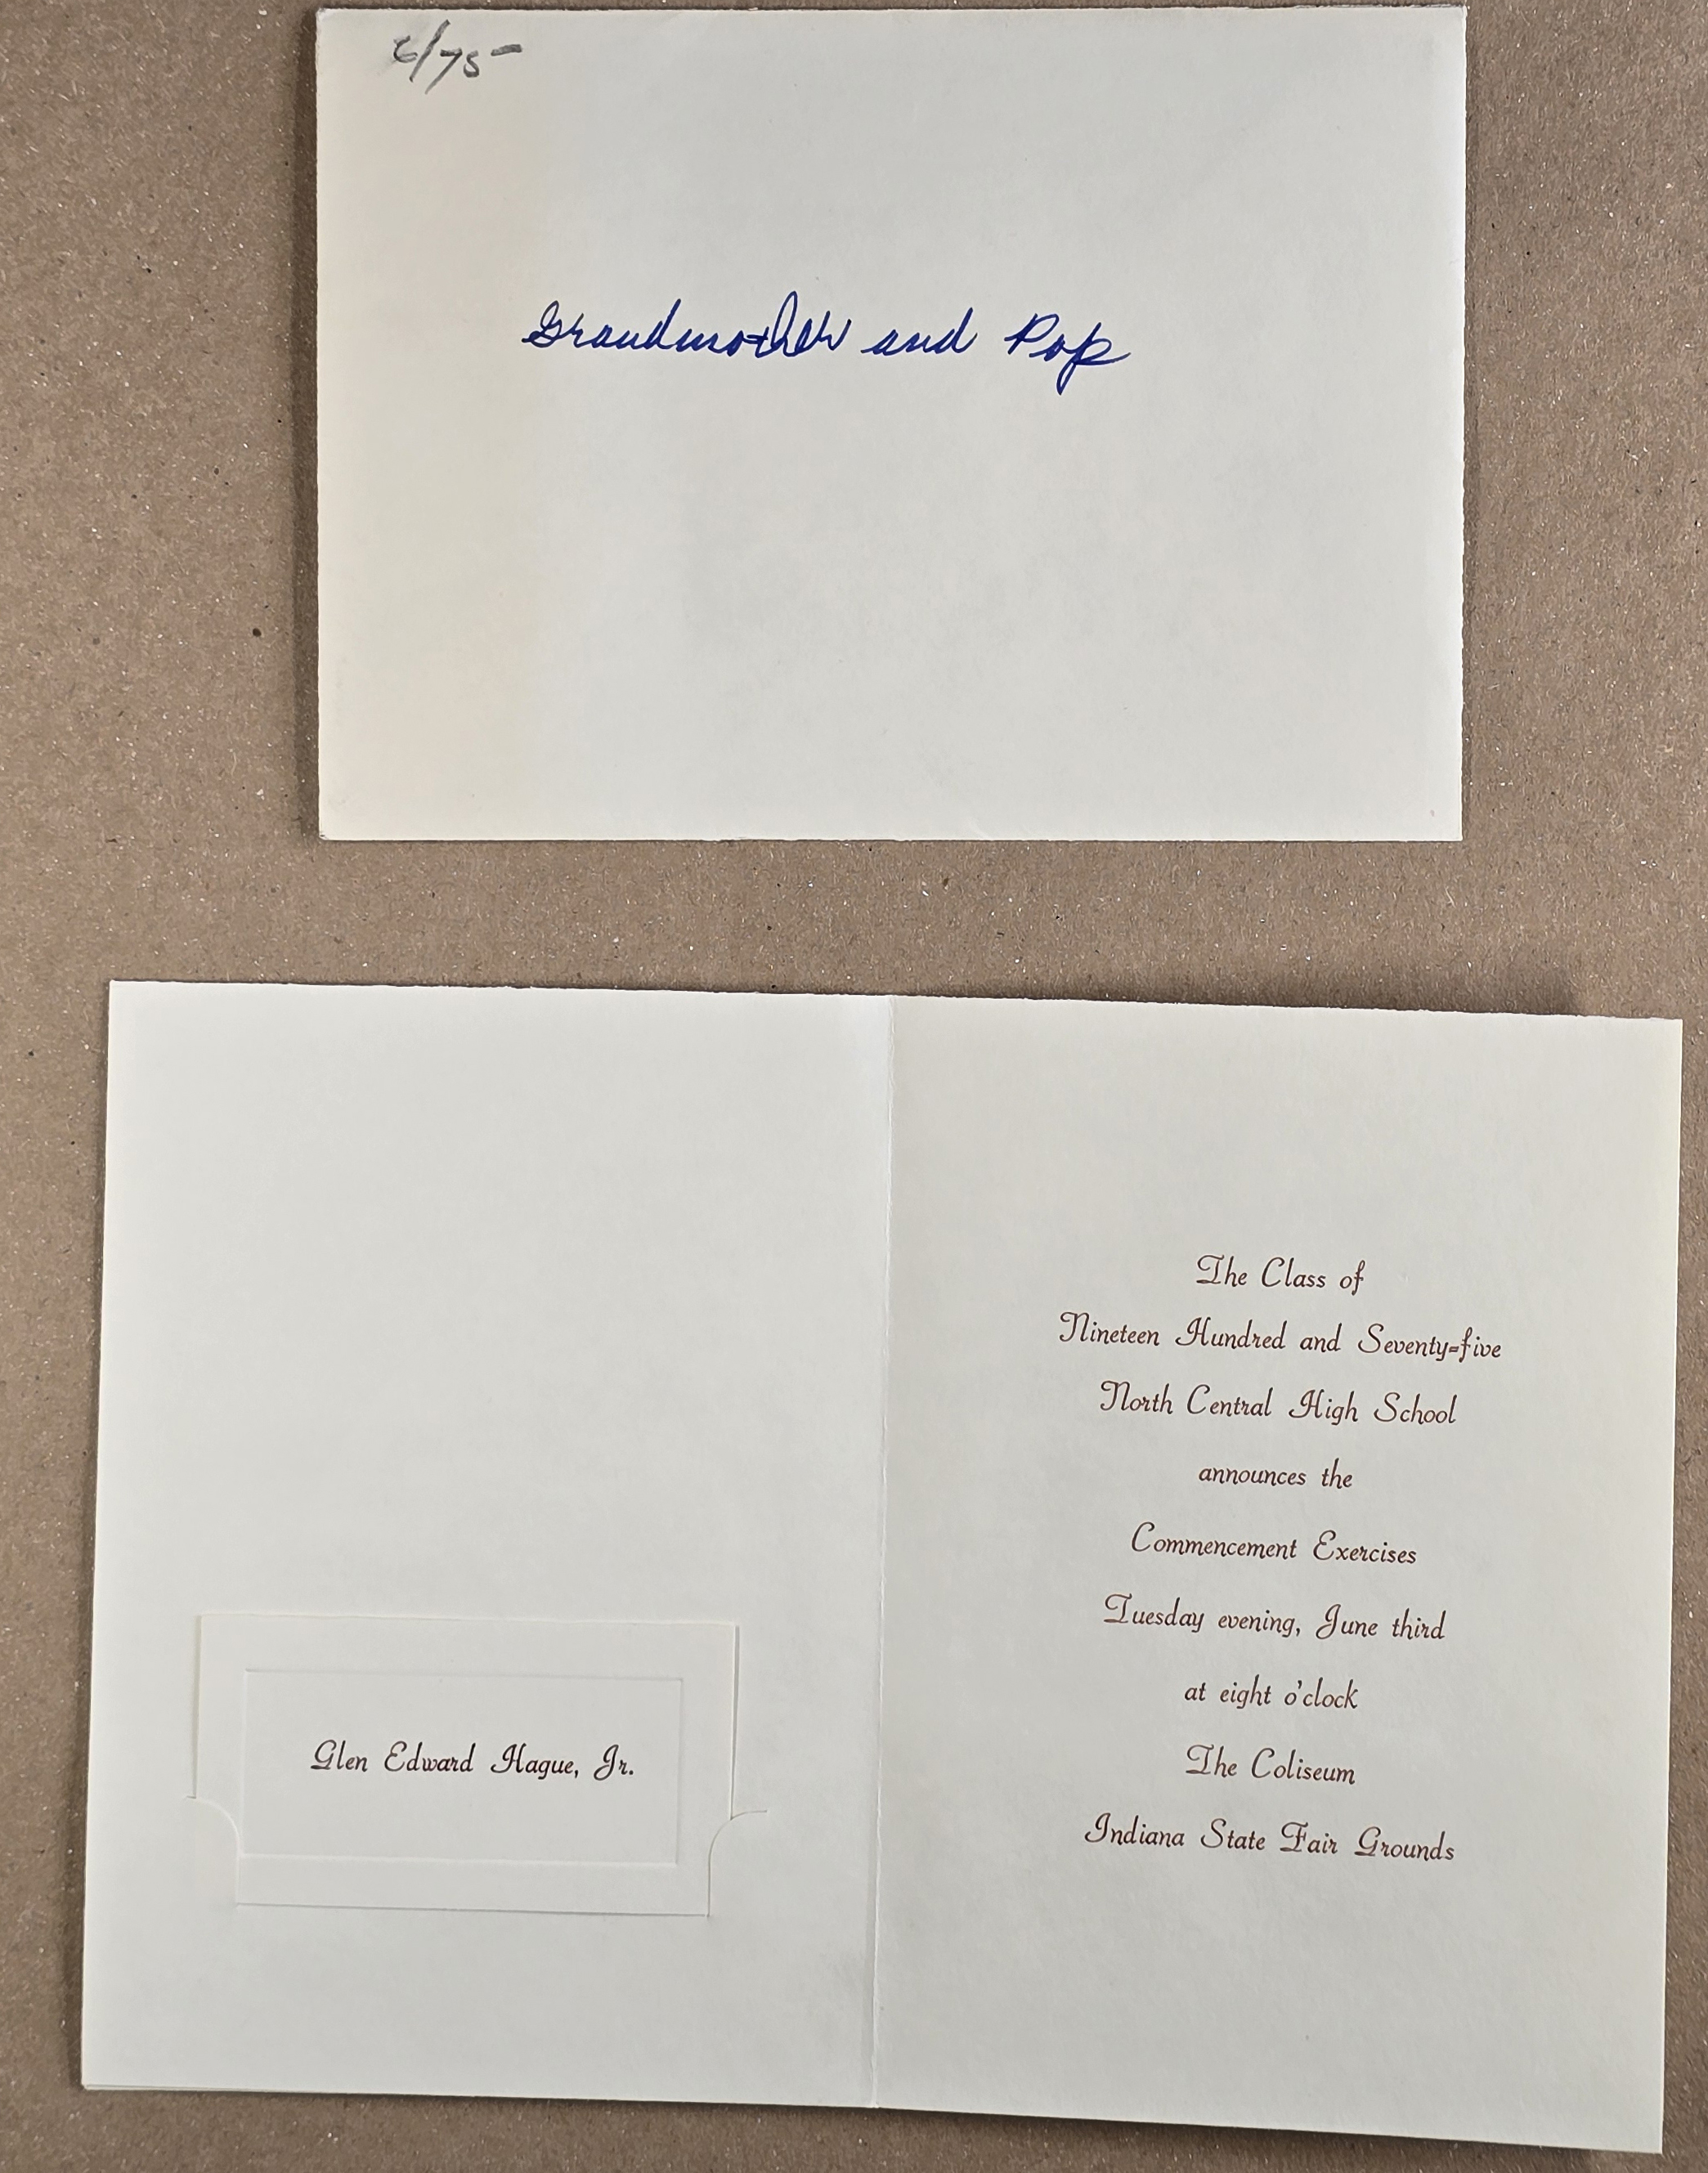 6/75-
Grandmother and Pop
Glen Edward Hague, Jr.
The Class of
Nineteen Hundred and Seventy=five
North Central High School
announces the
Commencement Exercises
Tuesday evening, June third
at eight o'clock
The Coliseum
Indiana State Fair Grounds